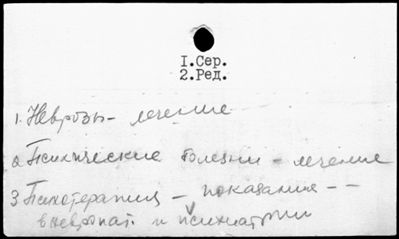 1.Сер.
2.Ред.
1. Неврозы - лечение
2. Психические болезни - лечение
3. Психотерапия - показания - -
в невропат. и психиатрии